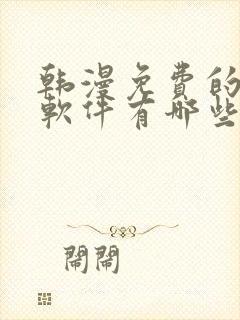 韩漫免费的
軟件有哪些
鬧鬧